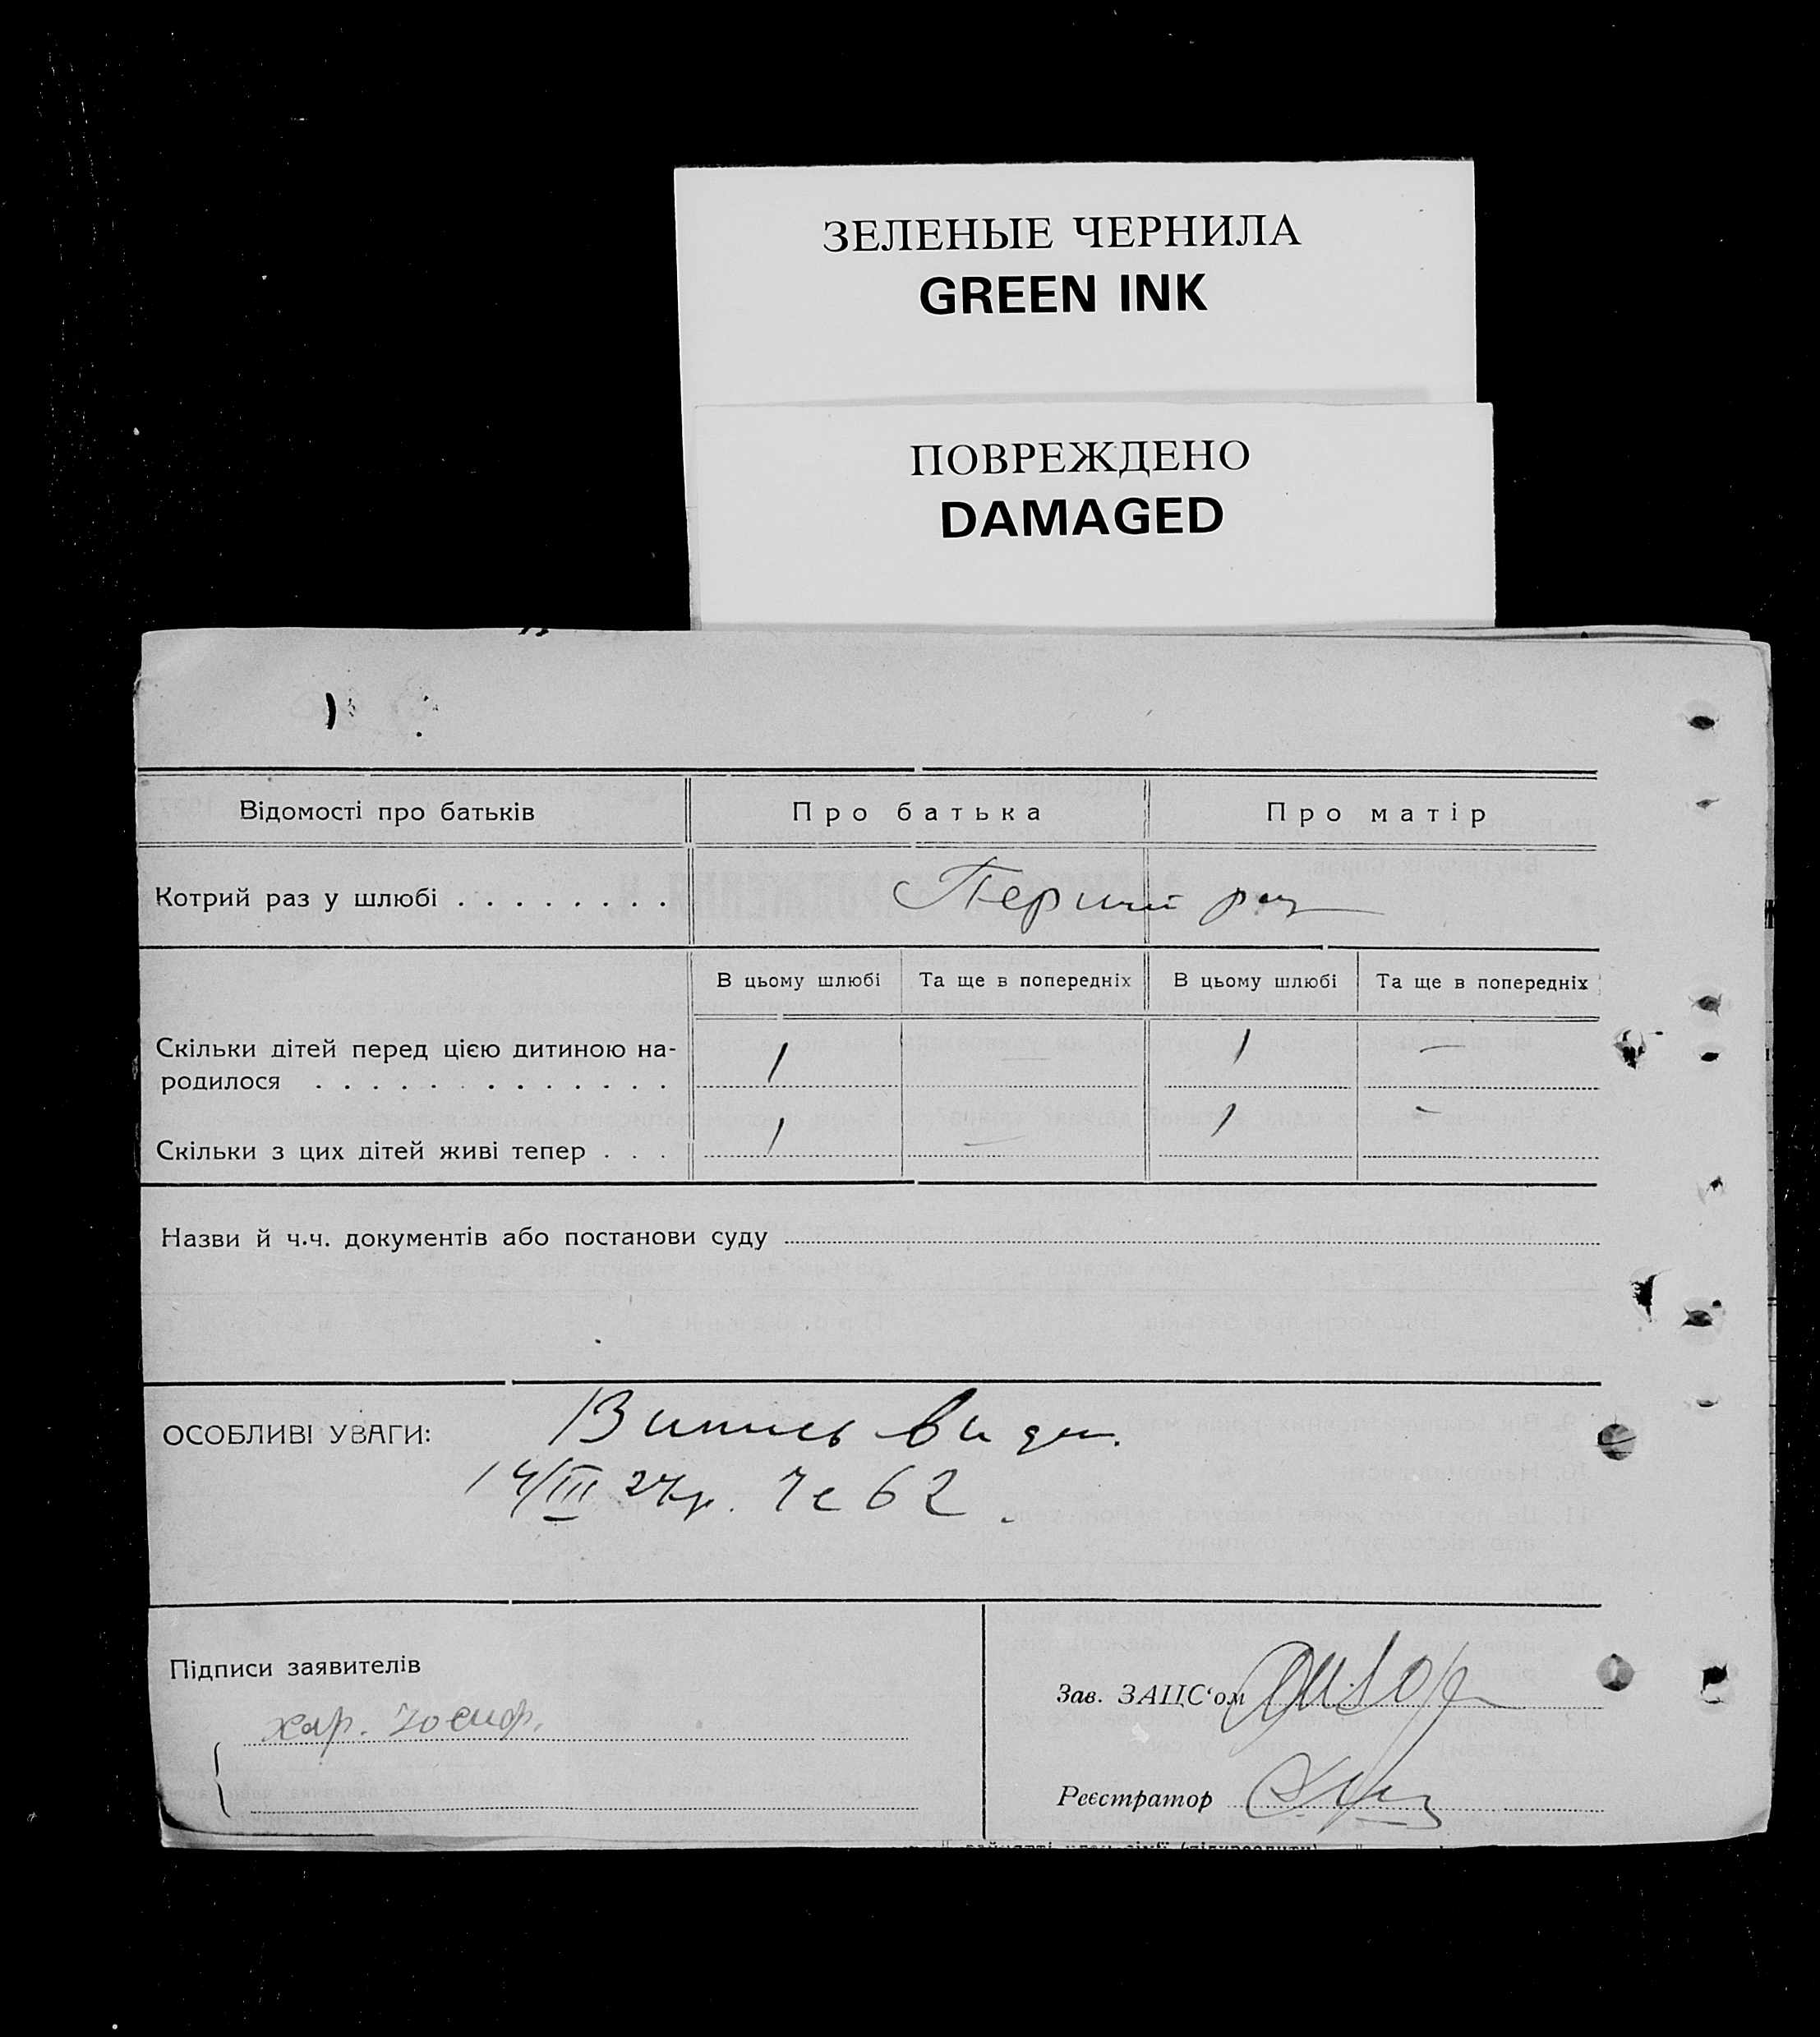 ЗЕЛЕНЫЕ ЧЕРНИЛА
GREEN INK
ПОВРЕЖДЕНО
DAMAGED
Відомості про батьків Про батька Про матір
Котрий раз у шлюбі . . . . . . . . Перший раз
В цьому шлюбі Та ще в попередніх В цьому шлюбі Та ще в попередніх
Скільки дітей перед цією дитиною на- 1 — 1 —
родилося . . . . . . . . . . . . .
Скільки з цих дітей живі тепер . . . 1 — 1 -
Назви й ч.ч. документів або постанови суду
ОСОБЛИВІ УВАГИ: Випись видан.
14/III 27р. Че 62.
Підписи заявителів
Зав. ЗАЦС‘ом
хар.
Реєстратор